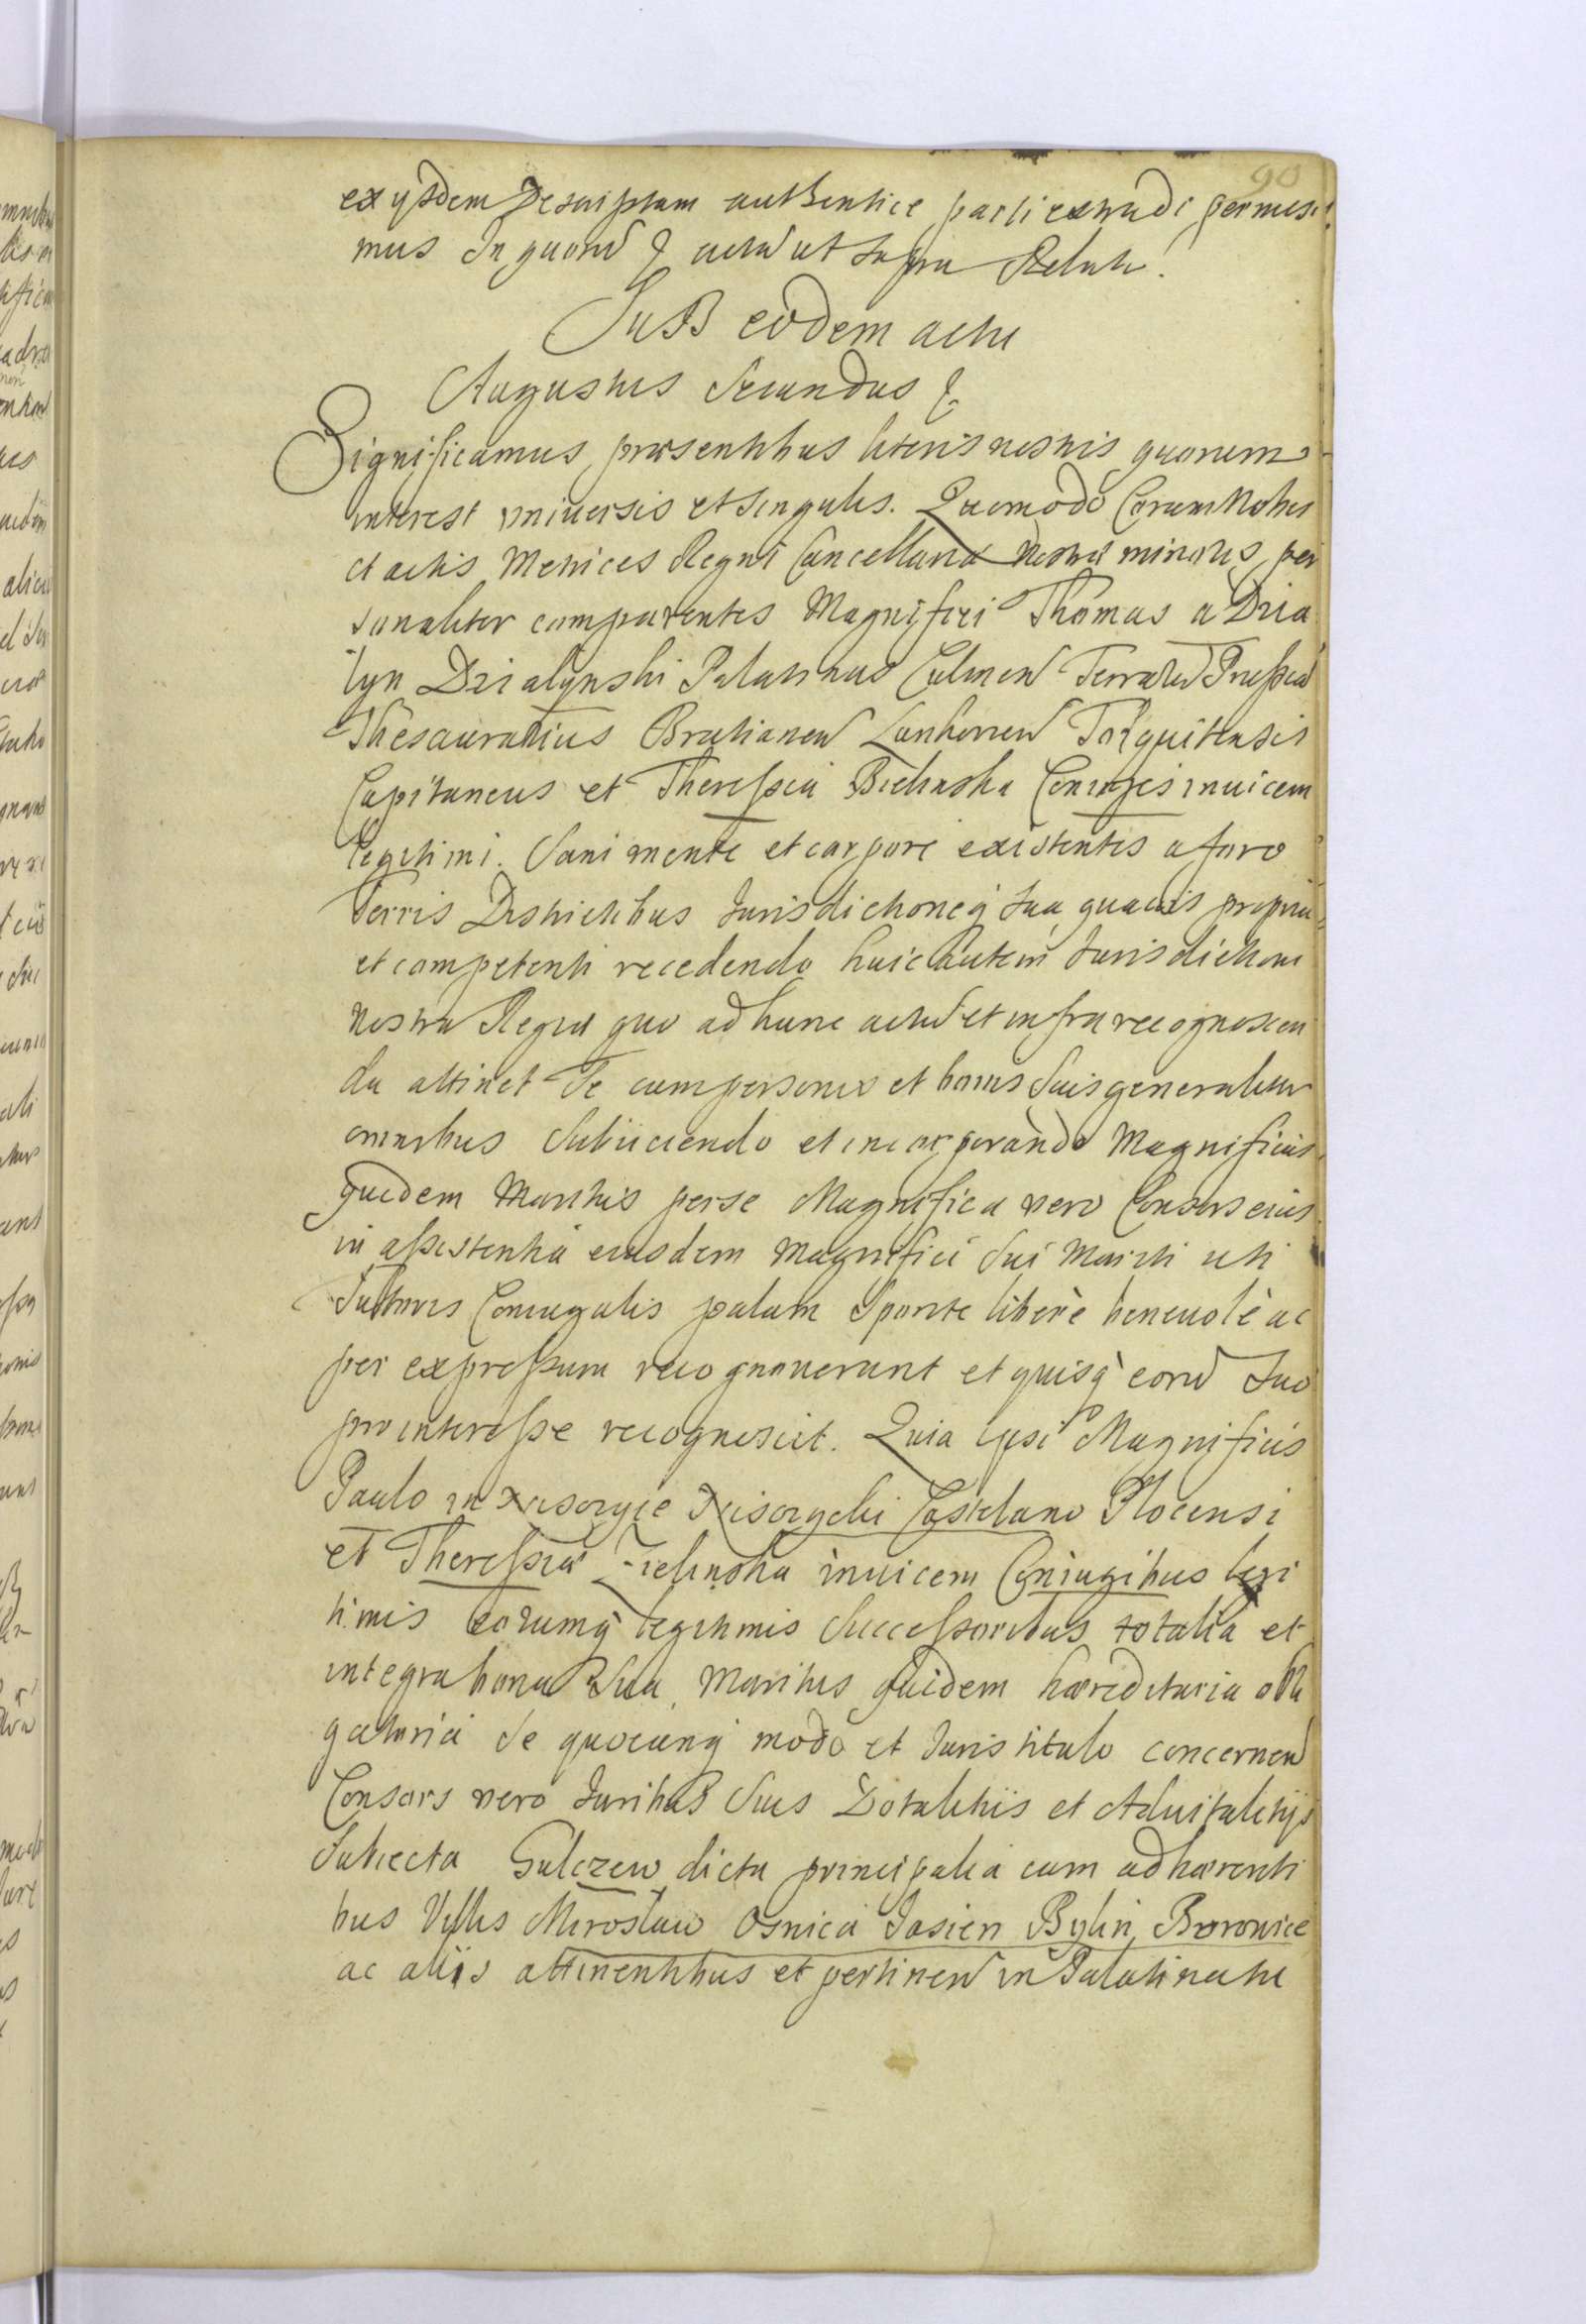 90
ex ijsdem Descriptam authentice parti extradi permisi
mus In quorũ & actũ ut supra Relati.
Sub eodem actu
Augustus Secundus &
Significamus præsentibus literis nostris quorum
interest vniuersis et singulis. Quomodo Coram Nobis
et actis Metrices Regni Cancellariæ Nostræ minoris per
sonaliter comparentes Magnifici Thomas a Dzia
lyn Dzialynski Palatinus Culmen Terrarũ Prussiæ
Thesaurarius Bratianen Lankoren Capitaneus et Theressia Bielinska Coniuges inuicem
legitimi. Sani mente et corpore existentes a foro
Terris Districtibus Jurisdictioneq sua quauis propria
et competenti recedendo huic autem Jurisdictioni
nostræ Regiæ quo ad hunc actũ et infra recognoscen
da attinet Se cum personis et bonis Suis generaliter
omnibus Subiiciendo et incorporando Magnificus
quidem Maritus per se Magnifica vero Consors eius
in assistentia eiusdem Magnifici Sui Mariti uti
Tutoris Coniugalis palam Sponte liberè beneuolè ac
per expressum recognouerunt et quisq eorũ suo
pro interesse recognoscit. Quia ipsi Magnificis
Paulo in Castelano Plocensi
et Theressiæ Zielinska inuicem Coniugibus legi
timis eorumq legitimis Successoribus totalia et
integra bona Sua Maritus quidem hæreditaria obli
gatoria Se quocunq modo et Juris titulo concernen
Consors vero Juribus Suis Dotalitiis et Aduitalitijs
Subiecta Gulczew dicta principalia cum adhærenti
bus Villis Miroslaw Osnica Jasien Bylin Boronice
ac aliis attinentibus et pertinen in Palatinatu